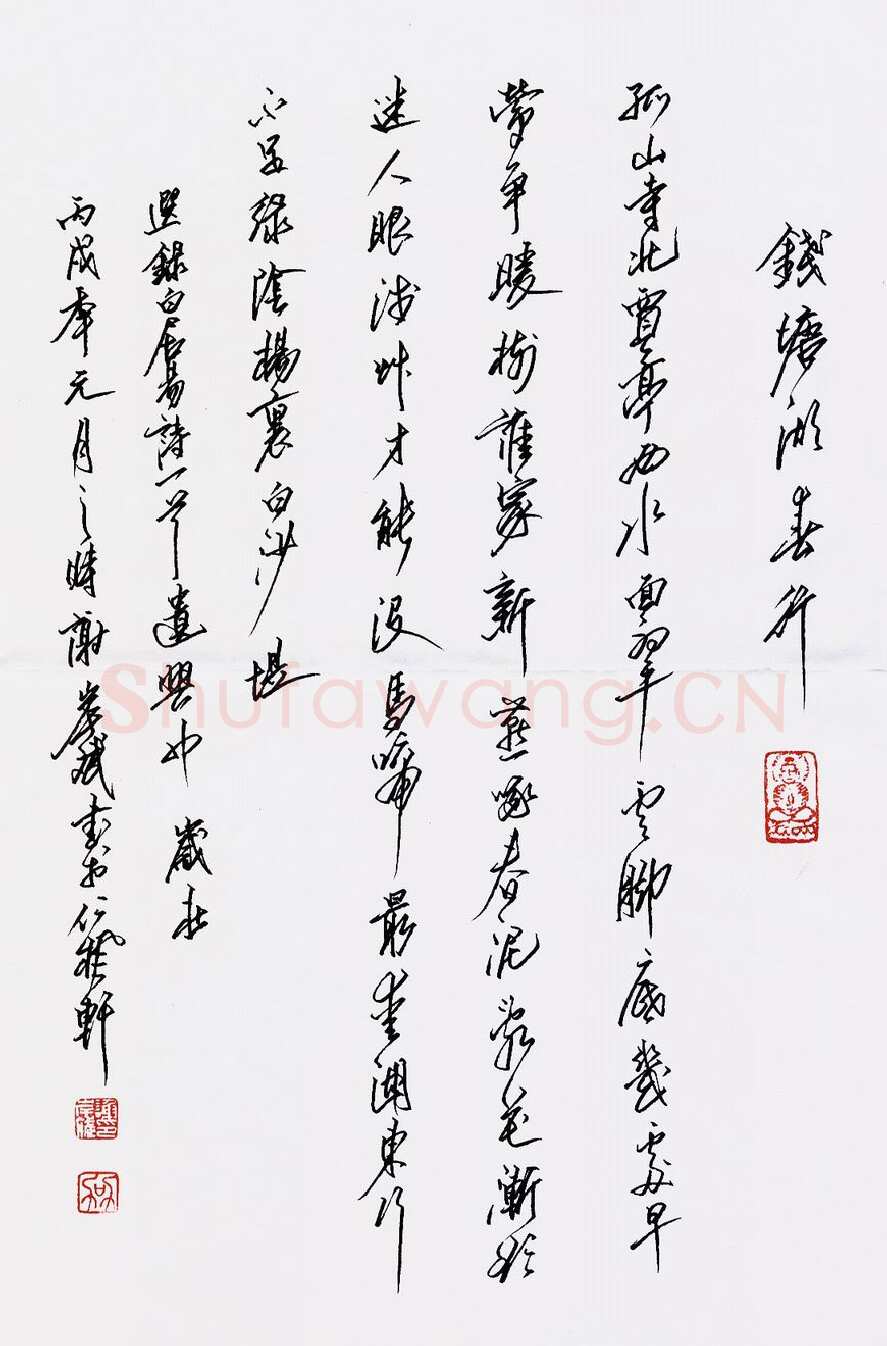 錢塘湖春行
孤山寺北賈亭西水面初平雲脚底幾處早
鶯爭暖樹誰家新燕啄春泥亂花漸欲
迷人眼淺艸才能沒馬啼最愛湖東行
不足綠陰楊裏白沙堤
選錄白居易詩一首遣興也 歲在
丙戌年元月之時謝書於仁軒
Shufawang.CN